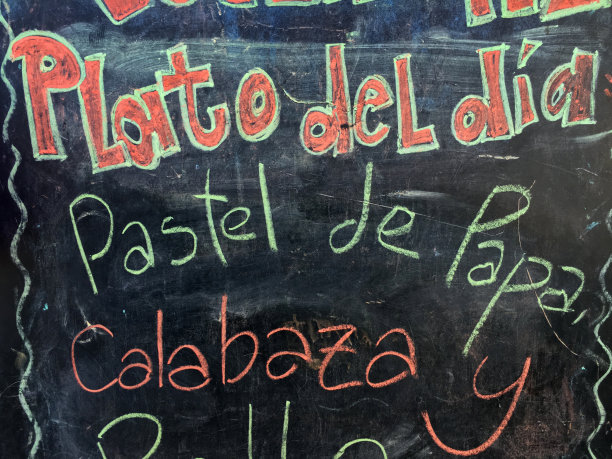 Plato del día
Pastel de Papa,
Calabaza y